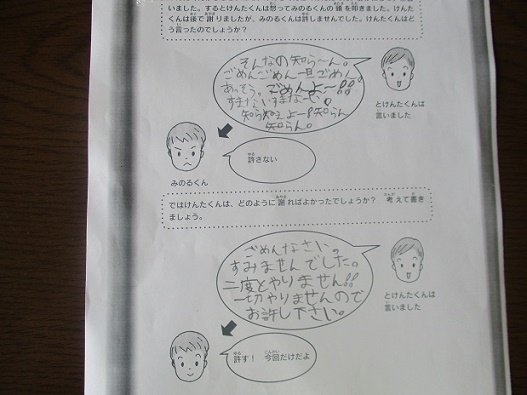 いました。するとけんたくんは怒ってみのるくんの頭を叩きました。けんた
くんは後で謝りましたが、みのるくんは許しませんでした。けんたくんはど
う言ったのでしょうか?
そんなの知ら〜ん。
ごめんごめん一旦ごめん。
あっそう。ごめんよ〜!!
すまないすまな〜い。
知ら知ねぇよー!知らん
知らん。
とけんたくんは
言いました
ゆる
許さない
みのるくん
あやま
かんが
か
ではけんたくんは、どのように謝ればよかったでしょうか? 考えて書き
ましょう。
ごめんなさい。
すみませんでした。
二度とやりません!!
一切やりませんので
お許し下さい。
とけんたくんは
言いました
ゆる
こんかい
許す! 今回だけだよ